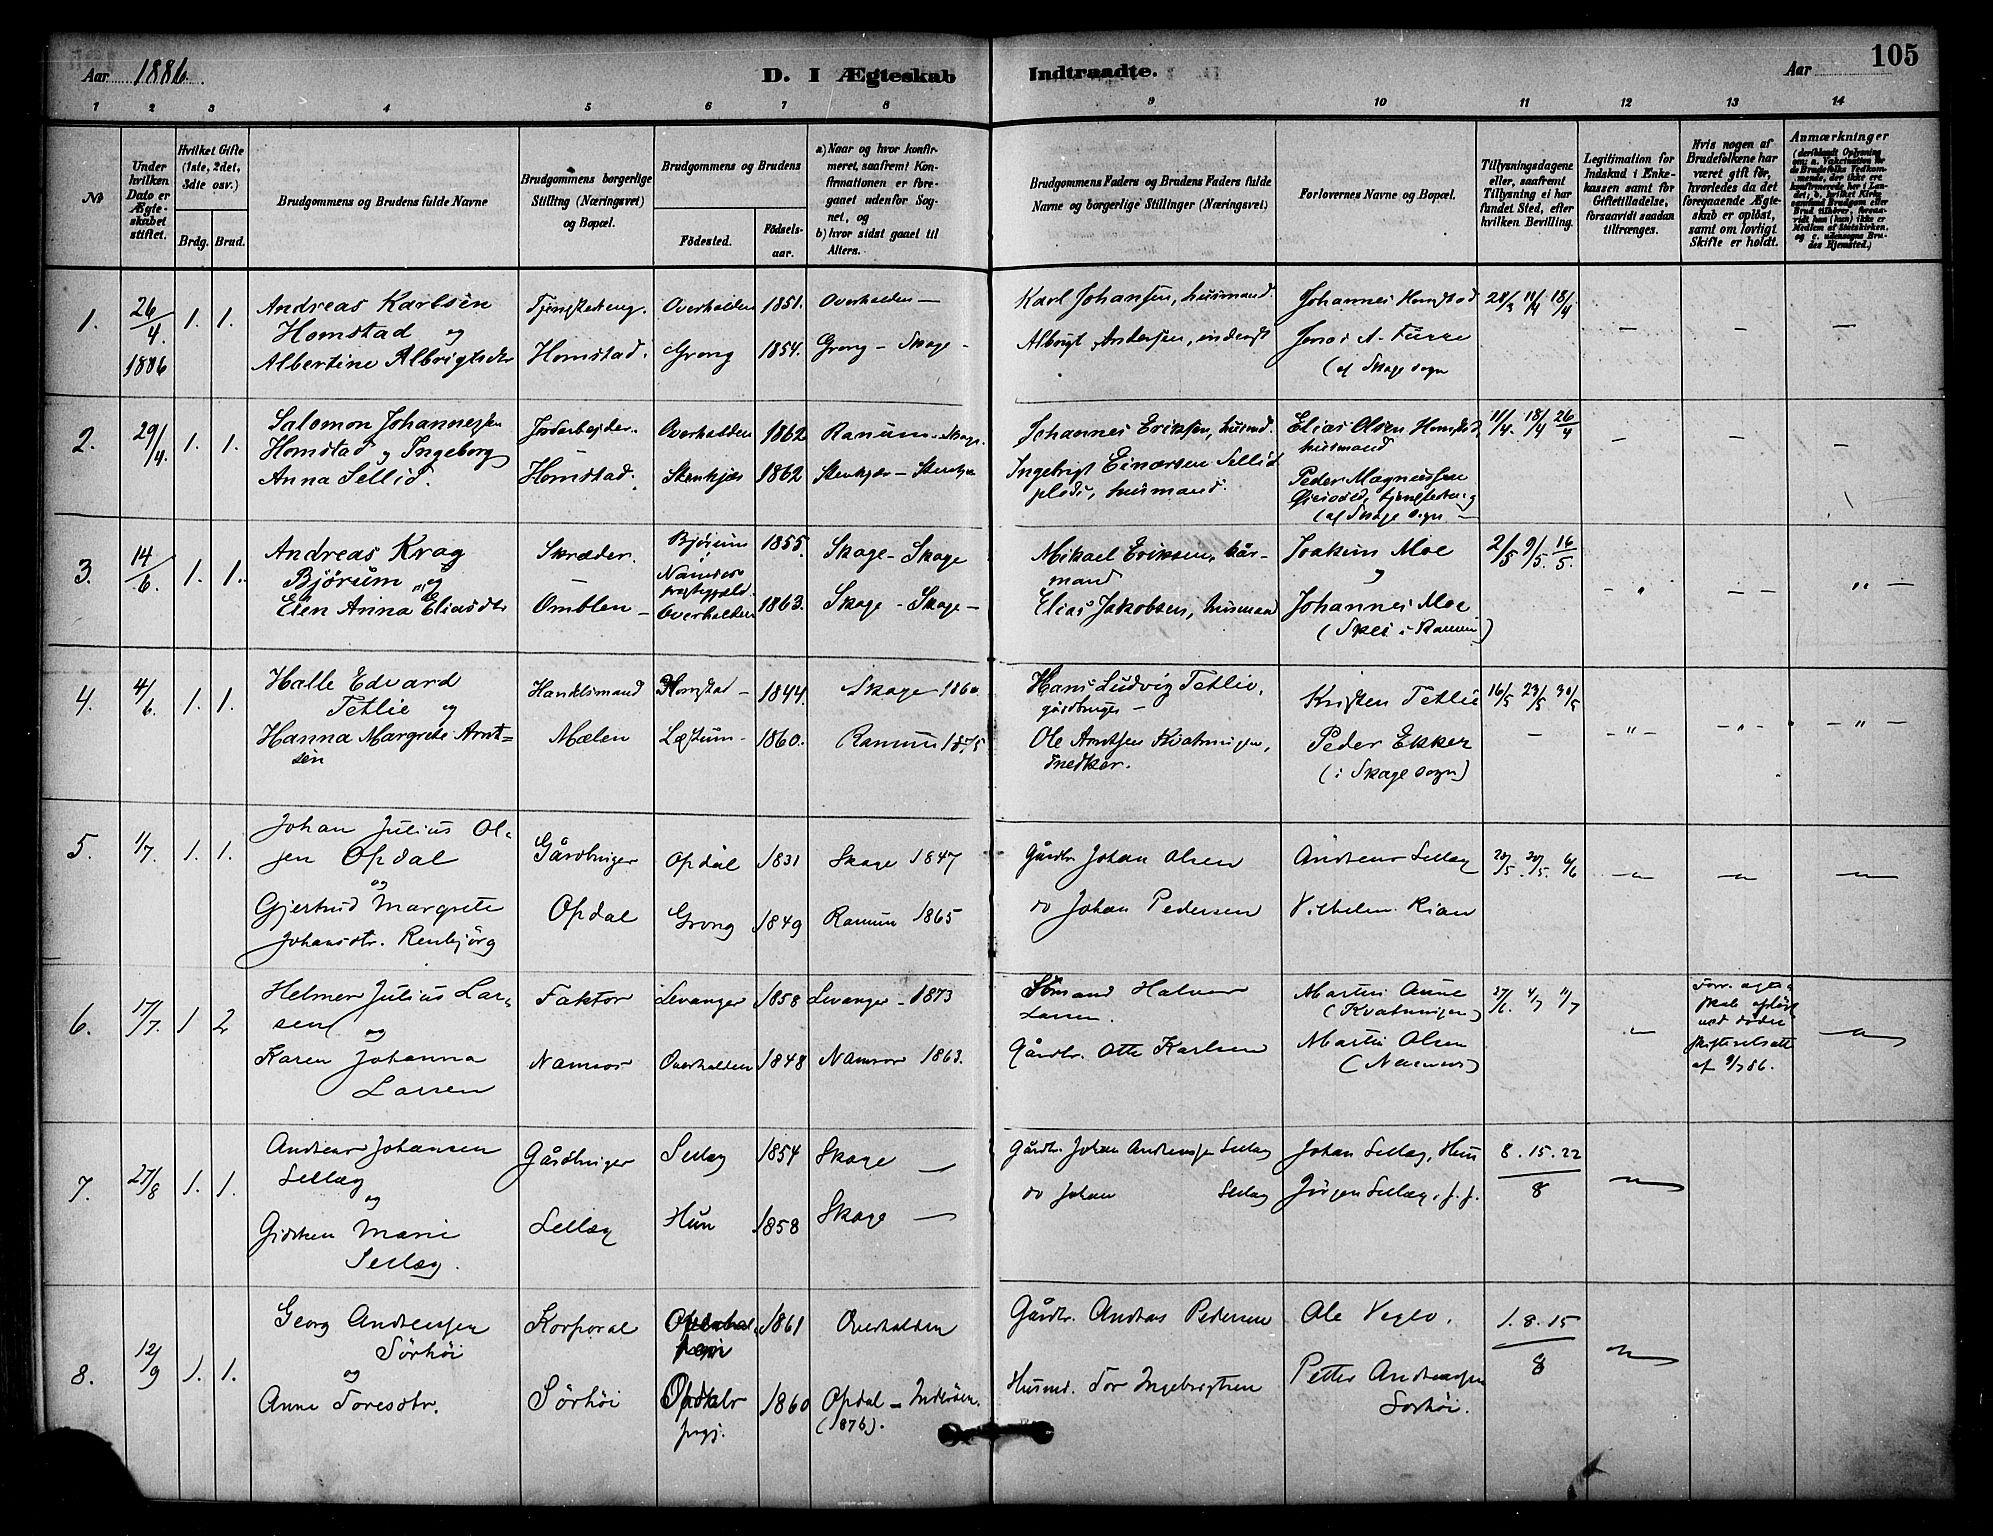 Aar 1886.
D. I Ægteskab Indtraadte.
Aar
105
1 2 3 4 5 6 7 8 9 10 11 12 13 14
No
Under hvilken Dato er Ægteskabet stiftet.
Hvilket Gifte (1ste, 2det, 3die osv.)
Brdg. Brud.
Brudgommens og Brudens fulde Navne
Brudgommens borgerlige Stilling (Næringsvei) og Bopæl.
Brudgommens og Brudens
Födested.
Födselsaar.
a) Naar og hvor konfirmeret, saafremt Konfirmationen er foregaaet udenfor Sognet, og
b) hvor sidst gaaet til Alters.
Brudgommens Faders og Brudens Faders fulde Navne og borgerlige Stillinger (Næringsvei)
Forlovernes Navne og Bopæl.
Tillysningsdagene eller, saafremt Tillysning ei har fundet Sted, efter hvilken Bevilling.
Legitimation for Indskud i Enkekassen samt for Giftetilladelse, forsaavidt saadan tiltrænges.
Hvis nogen af Brudefolkene har været gift för, hvorledes da det foregaaende Ægteskab er oplöst, samt om lovligt Skifte er holdt.
Anmærkninger
(deriblandt Oplysning om: a. Vakcination for de Brudefolks Vedkommende, der ikke ere konfirmerede her i Landet; b. hvilket Kirkesamfund Brudgom eller Brud tilhörer, forsaavidt han (hun) ikke er Medlem af Statskirken, og c. udensogns Brudes Hjemsted.)
1. 26/4 1886 1. 1.
Andreas Karlsen
Homstad og
Albertine Albrigtsdtr
Tjenestedreng.
Homstad.
Overhalden 1851. Overhalden —
Grong 1854. Grong — Skage —
Karl Johansen, husmand
Albrigt Andersen, inderst
Johannes Homstad
Jonas A. Furre
(af Skage sogn
28/3 11/4 18/4
2. 29/4. 1. 1.
Salomon Johannessen
Homstad og Ingeborg
Anna Sellid.
Jordarbejder.
Homstad.
Overhalden 1862 Ranum — Skage.
Stenkjær 1862 Stenkjær — Stenkjær
Johannes Eriksen, husmd.
Ingebrigt Einarsen Sellid
plads, husmand.
Elias Olsen Homstad,
husmand
Peder Magnussen
(af Skage sogn —
11/4. 18/4 26/4
3. 14/6. 1. 1.
Andreas Krag
Bjørum og
Elen Anna Eliasdtr
Skræder.
Omblen —
Bjørum i
Namsos
prestegjæld. 1855. Skage — Skage
Overhalden 1863. Skage — Skage —
Mikael Eriksen, kårmand
Elias Jakobsen, husmand
Joakim Moe
og
Johannes Moe
(Skei i Ranum)
2/5 9/5. 16/5.
4. 4/6. 1. 1.
Halle Edvard
Tetlie og
Hanna Margrete Arnt=
sen
Handelsmand
Mælen
Homstad — 1844. Skage 1860.
Læstum — 1860. Ranum 1875
Hans Ludvig Tetlie,
gårdbruger —
Ole Arntsen Kvatningen,
snedker.
Kristen Tetlie
Peder Ekker
(i Skage sogn)
16/5 23/5 30/5
5. 1/7. 1. 1.
Johan Julius Ol-
sen Opdal
og
Gjertrud Margrete
Johansdtr. Renbjörg
Gårdbruger
Opdal
Opdal 1831 Skage 1847
Grong 1849 Ranum 1865
Gårdbr. Johan Olsen
do Johan Pedersen
Andreas Sellæg
Vilhelm Rian
23/5. 30/5. 6/6
6. 17/7. 1 2
Helmer Julius Lar-
sen og
Karen Johanna
Larsen
Faktor
Namsos
Levanger 1858 Levanger — 1873
Overhalden 1848 Namsos 1863.
Sømand Halvor
Larsen.
Gårdbr. Otte Karlsen
Martin Aune
(Kvatningen)
Martin Olsen
(Namsos)
27/6. 4/7 11/7
Forr. ægte-
skab opløst
ved døden
skifteretsatt.
af 9/7 86.
7. 27/8 1. 1.
Andreas Johansen
Sellæg
og
Gidsken Marie
Sellæg.
Gårdbruger
Sellæg
Sellæg 1854 Skage —
Hun 1858 Skage —
Gårdbr. Johan Andreassen Sellæg
do Johan Sellæg
Johan Sellæg, Hun
Jörgen Sellæg, s. s.
8. 15. 22
8
8. 12/9 1. 1.
Georg Andreassen
Sørhöi
og
Anne Toresdtr.
Korporal
Sörhöi
1861 Overhalden
Opdal
prgj. 1860 Opdal — Inderøen.
(1876).
Gårdbr. Andreas Pedersen
Husmd. Tor Ingebrigtsen
Ole Veglo.
Petter Andreassen
Sørhöi.
1. 8. 15
8